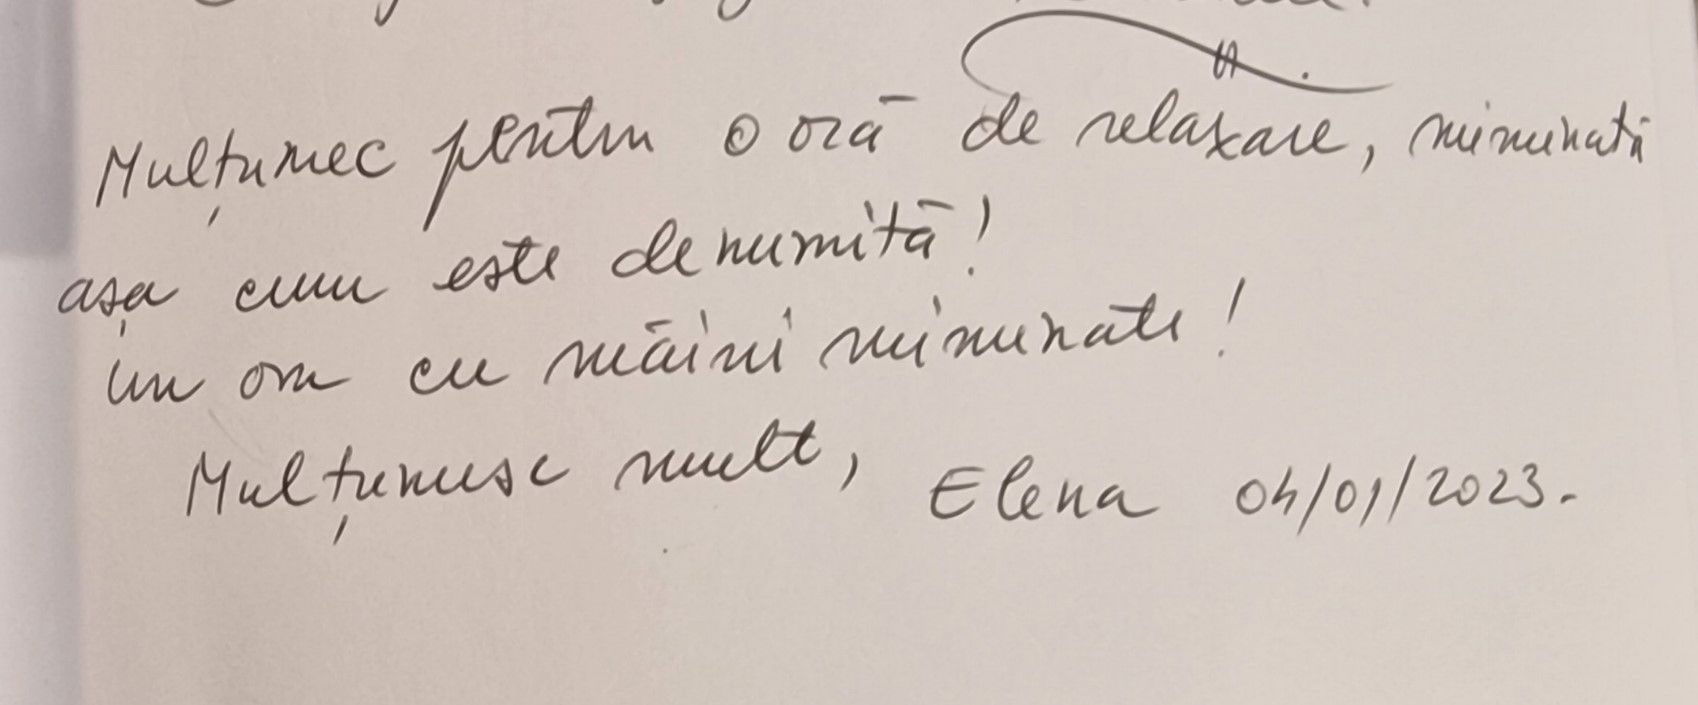 Mulțumec pentru o oră de relaxare, minunată
așa cum este denumită!
un om cu mâini minunate!
Mulțumesc mult, Elena 04/01/2023.